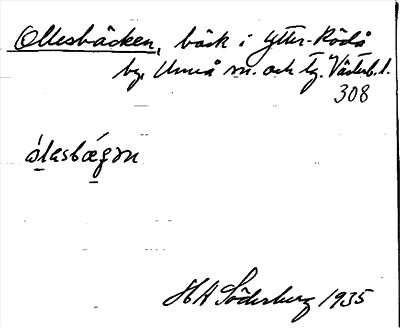 Ollesbäcken, bäck i Ytter-Rödå
by, Umeå sn. och tg. Västerb. l.
308
ålasbæ̀gm
HA Söderberg 1935